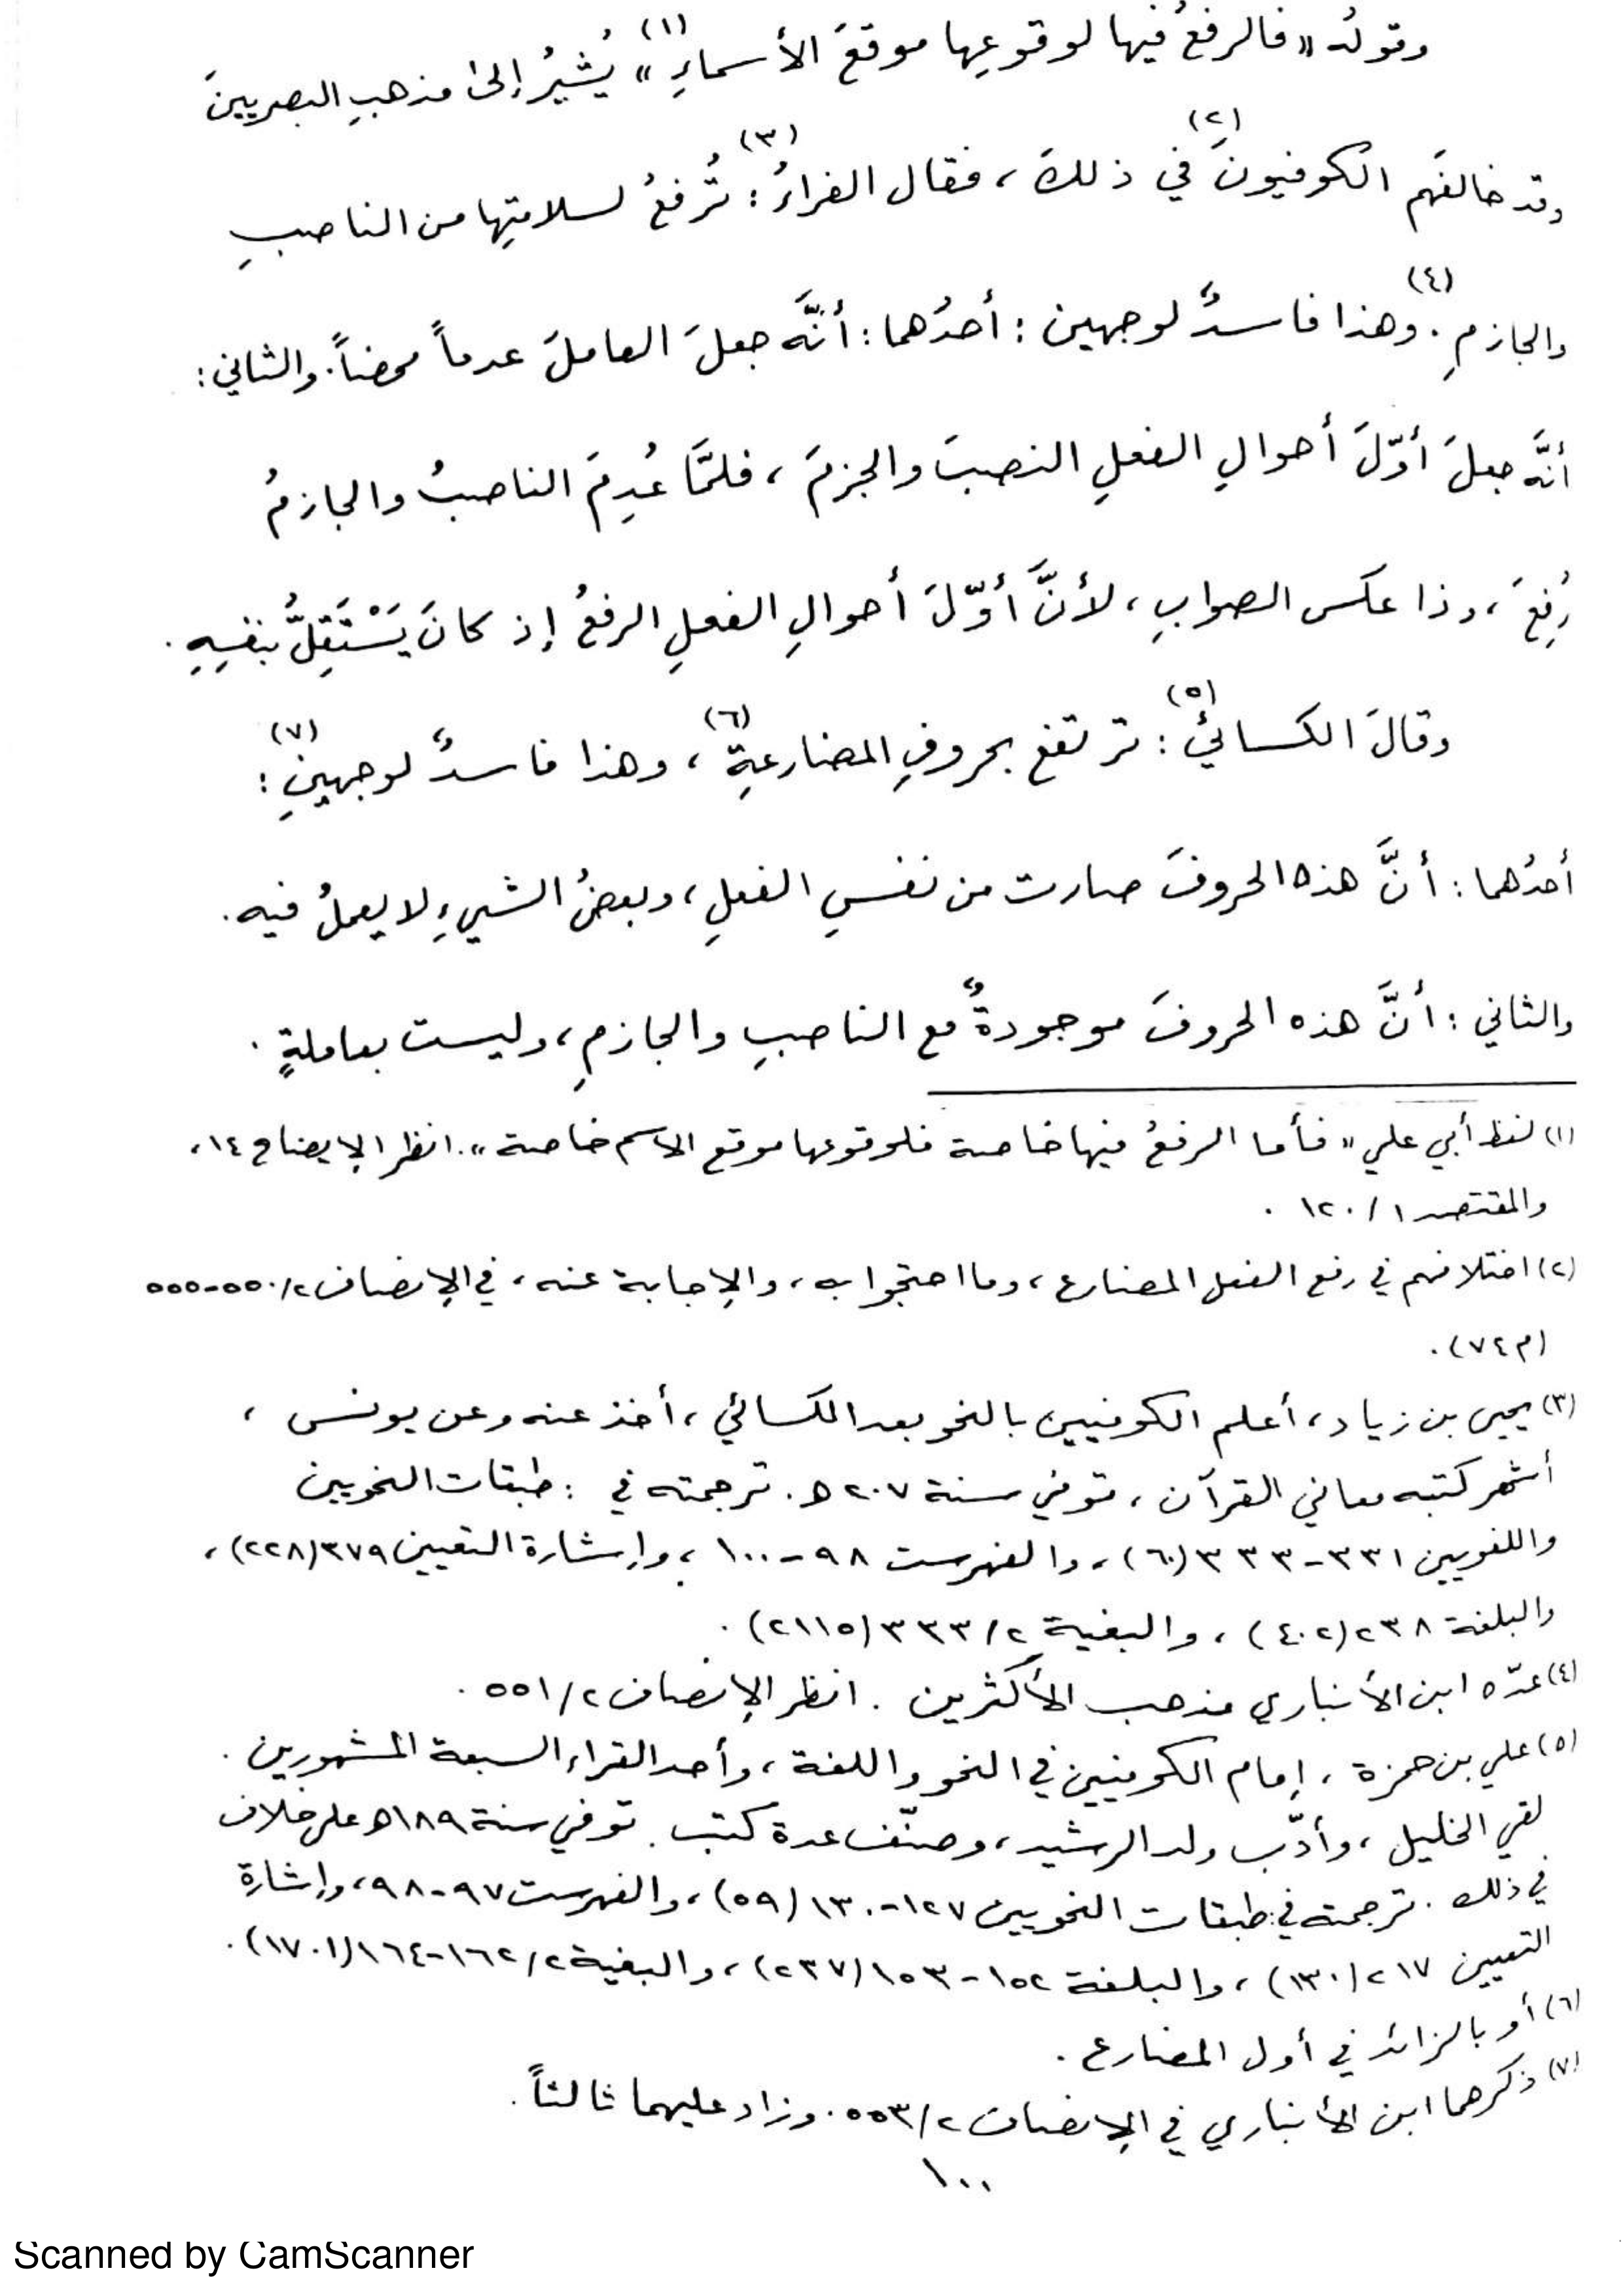 وقولُه «فالرفعُ فيها لوقوعِها موقعَ الأسماءِ (١)» يُشيرُ إلىٰ مذهبِ البصريينَ
وقد خالفَهم الكوفيونَ (٢) في ذلكَ، فقال الفراءُ (٣): تُرفعُ لسلامتِها من الناصبِ
والجازمِ (٤). وهذا فاسدٌ لوجهين: أحدُهما: أنَّه جعلَ العاملَ عدماً محضاً. والثاني:
أنَّه جعلَ أوّلَ أحوالِ الفعلِ النصبَ والجزمَ، فلمَّا عُدِمَ الناصبُ والجازمُ
رُفِعَ، وذا عكس الصوابِ، لأنَّ أوّلَ أحوالِ الفعلِ الرفعُ إذ كانَ يَسْتَقِلُّ بنفسِهِ.
وقالَ الكسائيُّ (٥): ترتفع بحروفِ المضارعةِ (٦)، وهذا فاسدٌ لوجهينِ (٧):
أحدُهما: أنَّ هذه الحروفَ صارت من نفسِ الفعلِ، وبعضُ الشيءِ لا يعملُ فيه.
والثاني: أنَّ هذه الحروفَ موجودةٌ مع الناصبِ والجازمِ، وليست بعاملةٍ.
(١) لفظ أبي علي «فأما الرفعُ فيها خاصة فلوقوعها موقع الاسم خاصة». انظر الإيضاح ١٤،
والمقتصد ١/ ١٢٠.
(٢) اختلافهم في رفع الفعل المضارع، وما احتجوا به، والإجابة عنه، في الإنصاف ٢/ ٥٥٠-٥٥٥
(م ٧٤).
(٣) يحيى بن زياد، أعلم الكوفيين بالنحو بعد الكسائي، أخذ عنه وعن يونس،
أشهر كتبه معاني القرآن، توفي سنة ٢٠٧ هـ. ترجمته في: طبقات النحويين
واللغويين ٣٣١-٣٣٣ (٦٠)، والفهرست ٩٨-١٠٠، وإشارة التعيين ٣٧٩ (٢٢٨)،
والبلغة ٢٣٨ (٤٠٢)، والبغية ٢/ ٣٣٣ (٢١١٥).
(٤) عدّه ابن الأنباري مذهب الأكثرين. انظر الإنصاف ٢/ ٥٥١.
(٥) علي بن حمزة، إمام الكوفيين في النحو واللغة، وأحد القراء السبعة المشهورين.
لقي الخليل، وأدّب ولد الرشيد، وصنّف عدة كتب. توفي سنة ١٨٩ هـ على خلاف
في ذلك. ترجمته في: طبقات النحويين ١٢٧-١٣٠ (٥٩)، والفهرست ٩٧-٩٨، وإشارة
التعيين ٢١٧ (١٣٠)، والبلغة ١٥٢-١٥٣ (٢٣٧)، والبغية ٢/ ١٦٢-١٦٤ (١٧٠١).
(٦) أو بالزائد في أول المضارع.
(٧) ذكرهما ابن الأنباري في الإنصاف ٢/ ٥٥٣. وزاد عليهما ثالثاً.
١٠٠
Scanned by CamScanner